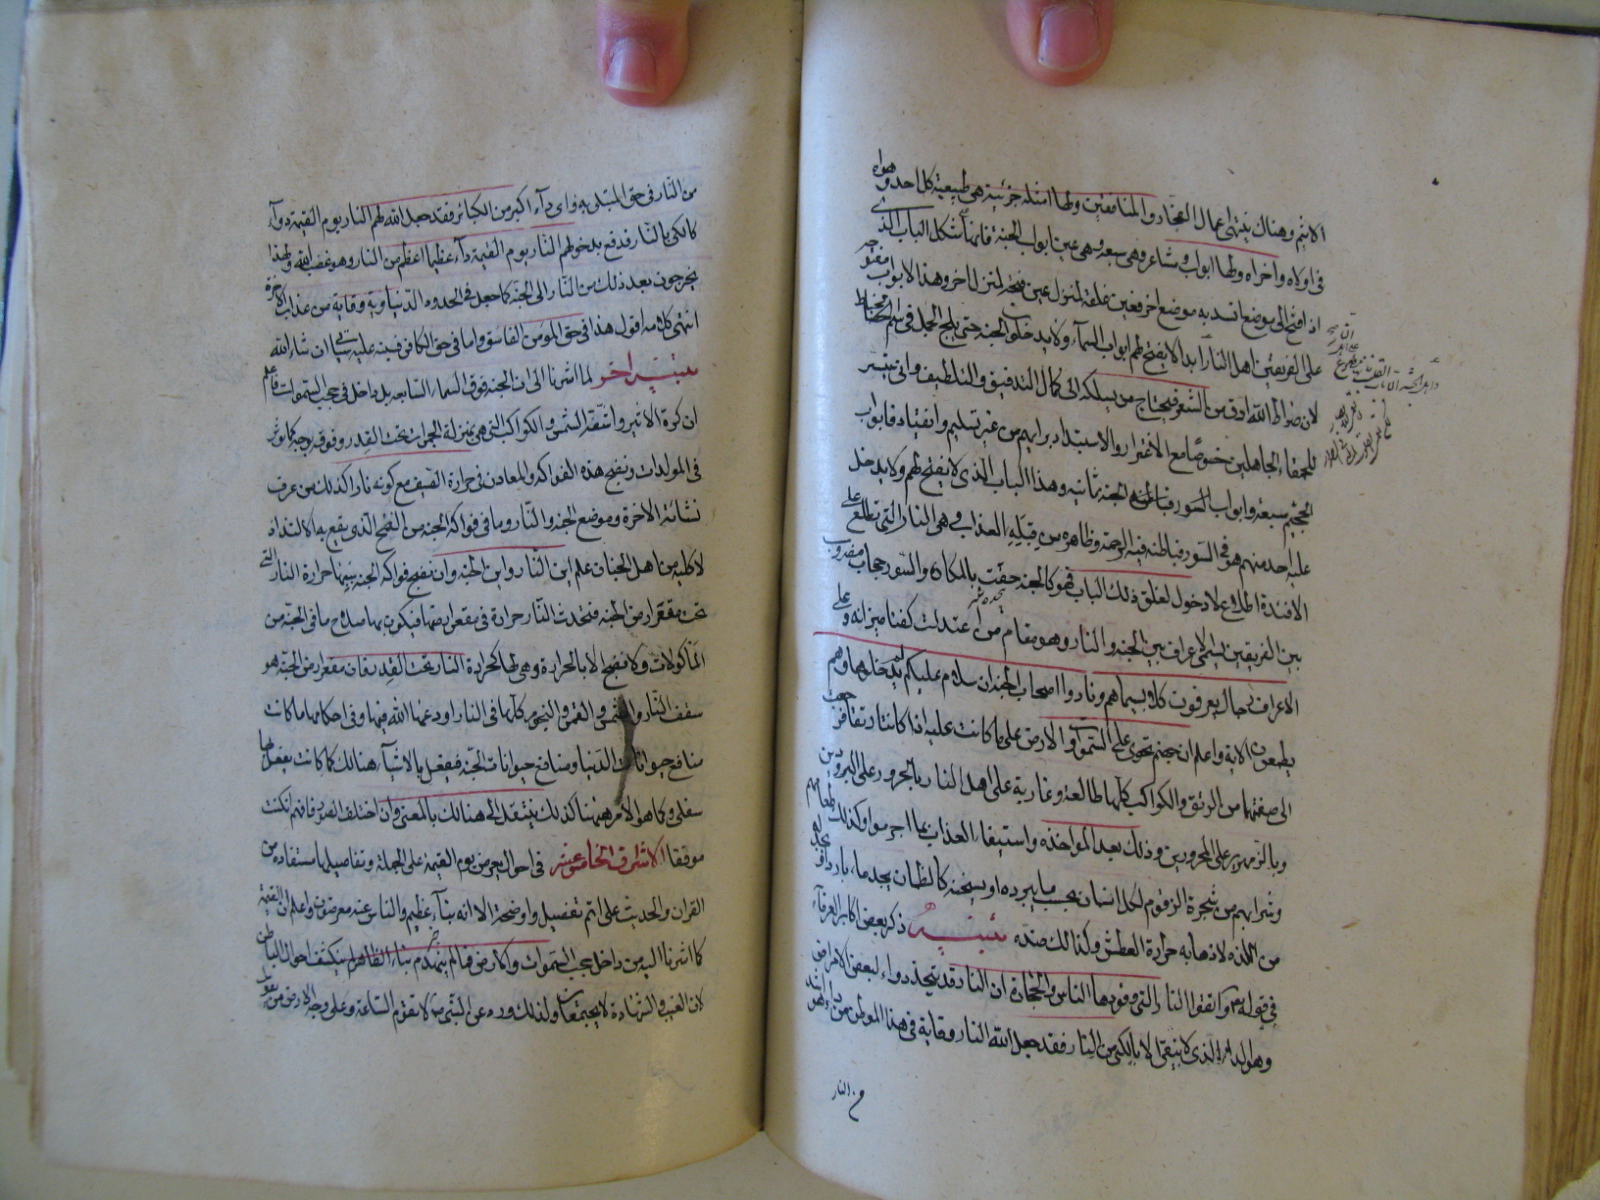 الاثيم وهناك ينتهى اعمال الفجار والمنافقين ولها امثلة جزئية هى طبيعية كل احد وهواه
فى اولاه واخراه ولها ابواب ومشاعر وهى سبعة وهى عين ابواب الجنة فانها على شكل الباب الذى
اذا فتح الى موضع انسد به موضع اخر فعين غلقه لمنزل عين فتحه لمنزل اخر وهذا الابواب مفتوحة
على الفريقين اهل النار ابدا لا يفتح لهم ابواب السماء ولا يدخلون الجنة حتى يلج الجمل فى سم الخياط
لان صراط الله ادق من الشعر فيحتاج من يسلكه الى كمال التدقيق والتلطيف وانى تيسر
للحمقاء الجاهلين خصوصا مع الاغترار والاستبداد برايهم من غير تسليم وانقياد فابواب
الجحيم سبعة وابواب الجنة ثمانية وهذا الباب الذى لا يفتح لهم ولا يدخل
عليه احد منهم هو فى السور فباطنه فيه الرحمة وظاهره من قبله العذاب وهى النار التى تطلع على
الافئدة اطلاع لا دخول لغلق ذلك الباب فهو كالجنة حفت بالمكاره والسور حجاب مضروب
بين الفريقين يسمى الاعراف بين الجنة والنار وهو مقام من اعتدلت كفتا ميزانه وعلى
الاعراف رجال يعرفون كلا بسيماهم ونادوا اصحاب الجنة ان سلام عليكم لم يدخلوها وهم
يطمعون الاية واعلم ان جهنم تحوى على السموات والارض على ما كانت عليه اذ كانتا رتقا فرجعت
الى صفتها من الرتق والكواكب كلها طالعة وغاربة على اهل النار بالحرور على المبرودين
وبالزمهرير على المحرورين وذلك بعد المواخذة واستيفاء العذاب بما اجرموا وكذلك طعامهم
وشرابهم من شجرة الزقوم لكل انسان بحسب ما يبرده او يسخنه كالظمان يجد ماء باردا فيجد له
من اللذة لاذهابه حرارة العطش وكذلك ضده تنبيه ذكر بعض اكابر العرفاء
فى قوله تعالى واتقوا النار التى وقودها الناس والحجارة ان النار قد يتخذ دواء لبعض الامراض
وهو الداء الذى لا يتقى الا بالكى من النار فقد جعل الله النار وقاية فى هذا الموطن من داء هو اشد
من النار
من النار فى حق المبتلى به واى داء اكبر من الكبائر فقد جعل الله لهم النار يوم القيمة دواء
كالكى بالنار فدفع بدخولهم النار يوم القيمة داء عظيما اعظم من النار وهو غضب الله ولهذا
يخرجون بعد ذلك من النار الى الجنة كما جعل فى الحدود الدنياوية وقاية من عذاب الاخرة
انتهى كلامه اقول هذا فى حق المومن الفاسق واما فى حق الكافر ففيه عليه سياتى ان شاء الله
تنبيه اخر لما اشرنا الى ان الجنة فوق السماء السابعة بل داخل فى حجب السموات فاعلم
ان كرة الاثير واشعة الشمس والكواكب التى هى بمنزلة الجمرات تحت القدر وفوقه بوجه كما يوثر
فى المولدات ونضج هذه الفواكه والمعادن فى حرارة الصيف مع كونه نارا كذلك من عرف
نشاة الاخرة وموضع الجنة والنار وما فى فواكه الجنة من النضج الذى يقع به الالتذاذ
لاكليه من اهل الجنان علم اين النار واين الجنة وان نضج فواكه الجنة سببها حرارة النار التى
تحت مقعر ارض الجنة فتحدث النار حرارة فى مقعر ارضها فيكون بها صلاح ما فى الجنة من
الماكولات ولا نضج الا بالحرارة وهى لها كحرارة النار تحت القدر فان مقعر ارض الجنة هو
سقف النار والشمس والقمر والنجوم كلها فى النار اودعها الله فيها وفى احكامها ما كانت
منافع حيوانات الدنيا ومنافع حيوانات الجنة فيفعل بالاشياء هنالك كما كانت يفعل هنا
سفلى وكما هو الامر ههنا كذلك ينتقل الى هنالك بالمعنى وان اختلف الصور فافهم تكن
موفقا الاشراق الخامس عشر فى احوال يعرض يوم القيمة على الجملة وتفاصيلها مستفادة من
القران والحديث على اتم تفصيل واوضحه الا انه نبا عظيم والناس عنه معرضون واعلم ان القيمة
كما اشرنا اليه من داخل حجب السموات والارض فما لم ينهدم بناء الظاهر لم ينكشف احوال الباطن
لان الغيب والشهادة لا يجتمعان ولذلك ورد عن النبى ص لا تقوم الساعة وعلى وجه الارض من يقول